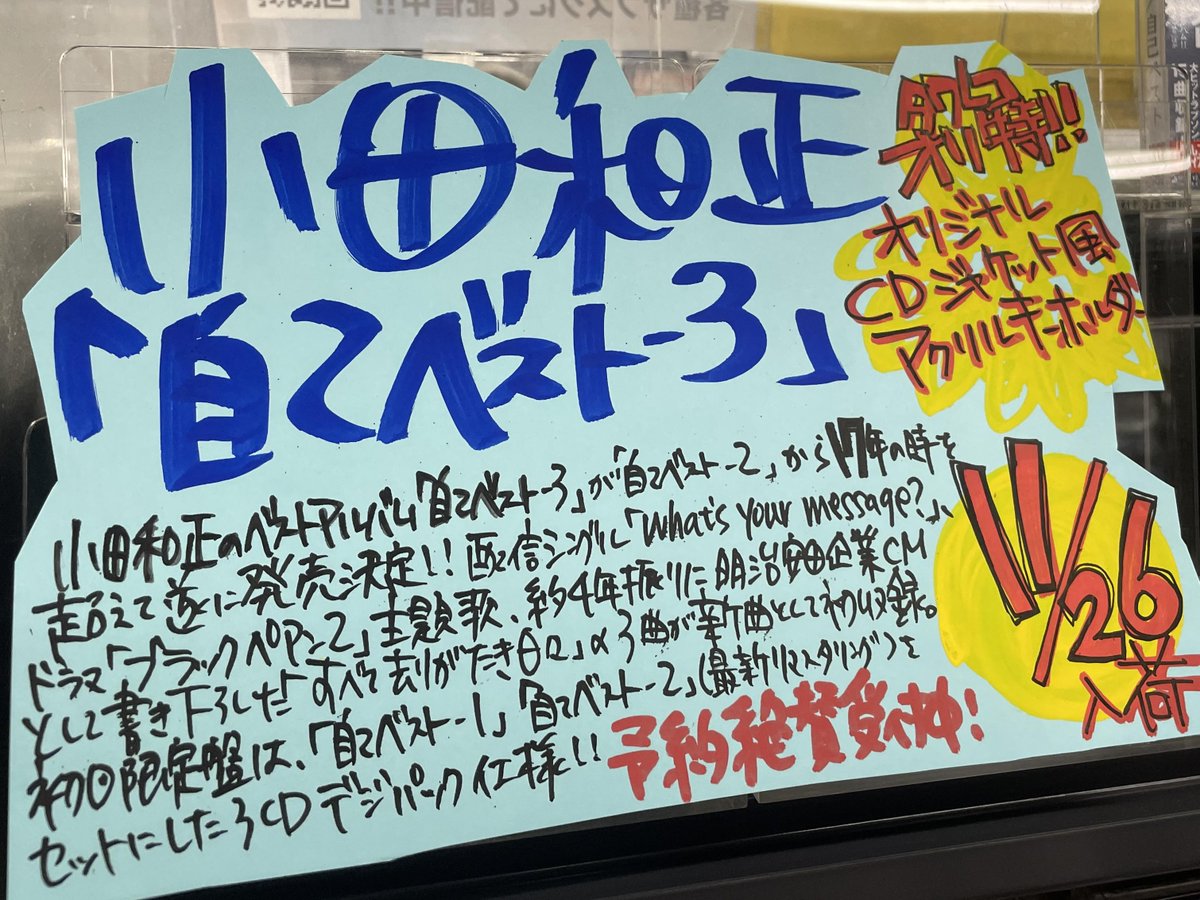 各種サブスクにて配信中!!
小田和正
「自己ベスト-3」
タワレコ
オリ特!!
オリジナル
CDジャケット風
アクリルキーホルダー
小田和正のベストアルバム「自己ベスト-3」が「自己ベスト-2」から17年の時を
超えて遂に発売決定!! 配信シングル「what's your message?」、
ドラマ「ブラックペアン2」主題歌、約4年振りに明治安田企業CM
として書き下ろした「すべて去りがたき日々」の3曲が新曲として初収録。
初回限定盤は、「自己ベスト-1」「自己ベスト-2」(最新リマスタリング)を
セットにした3CDデジパック仕様!!
予約絶賛受付中!
11/26
入荷